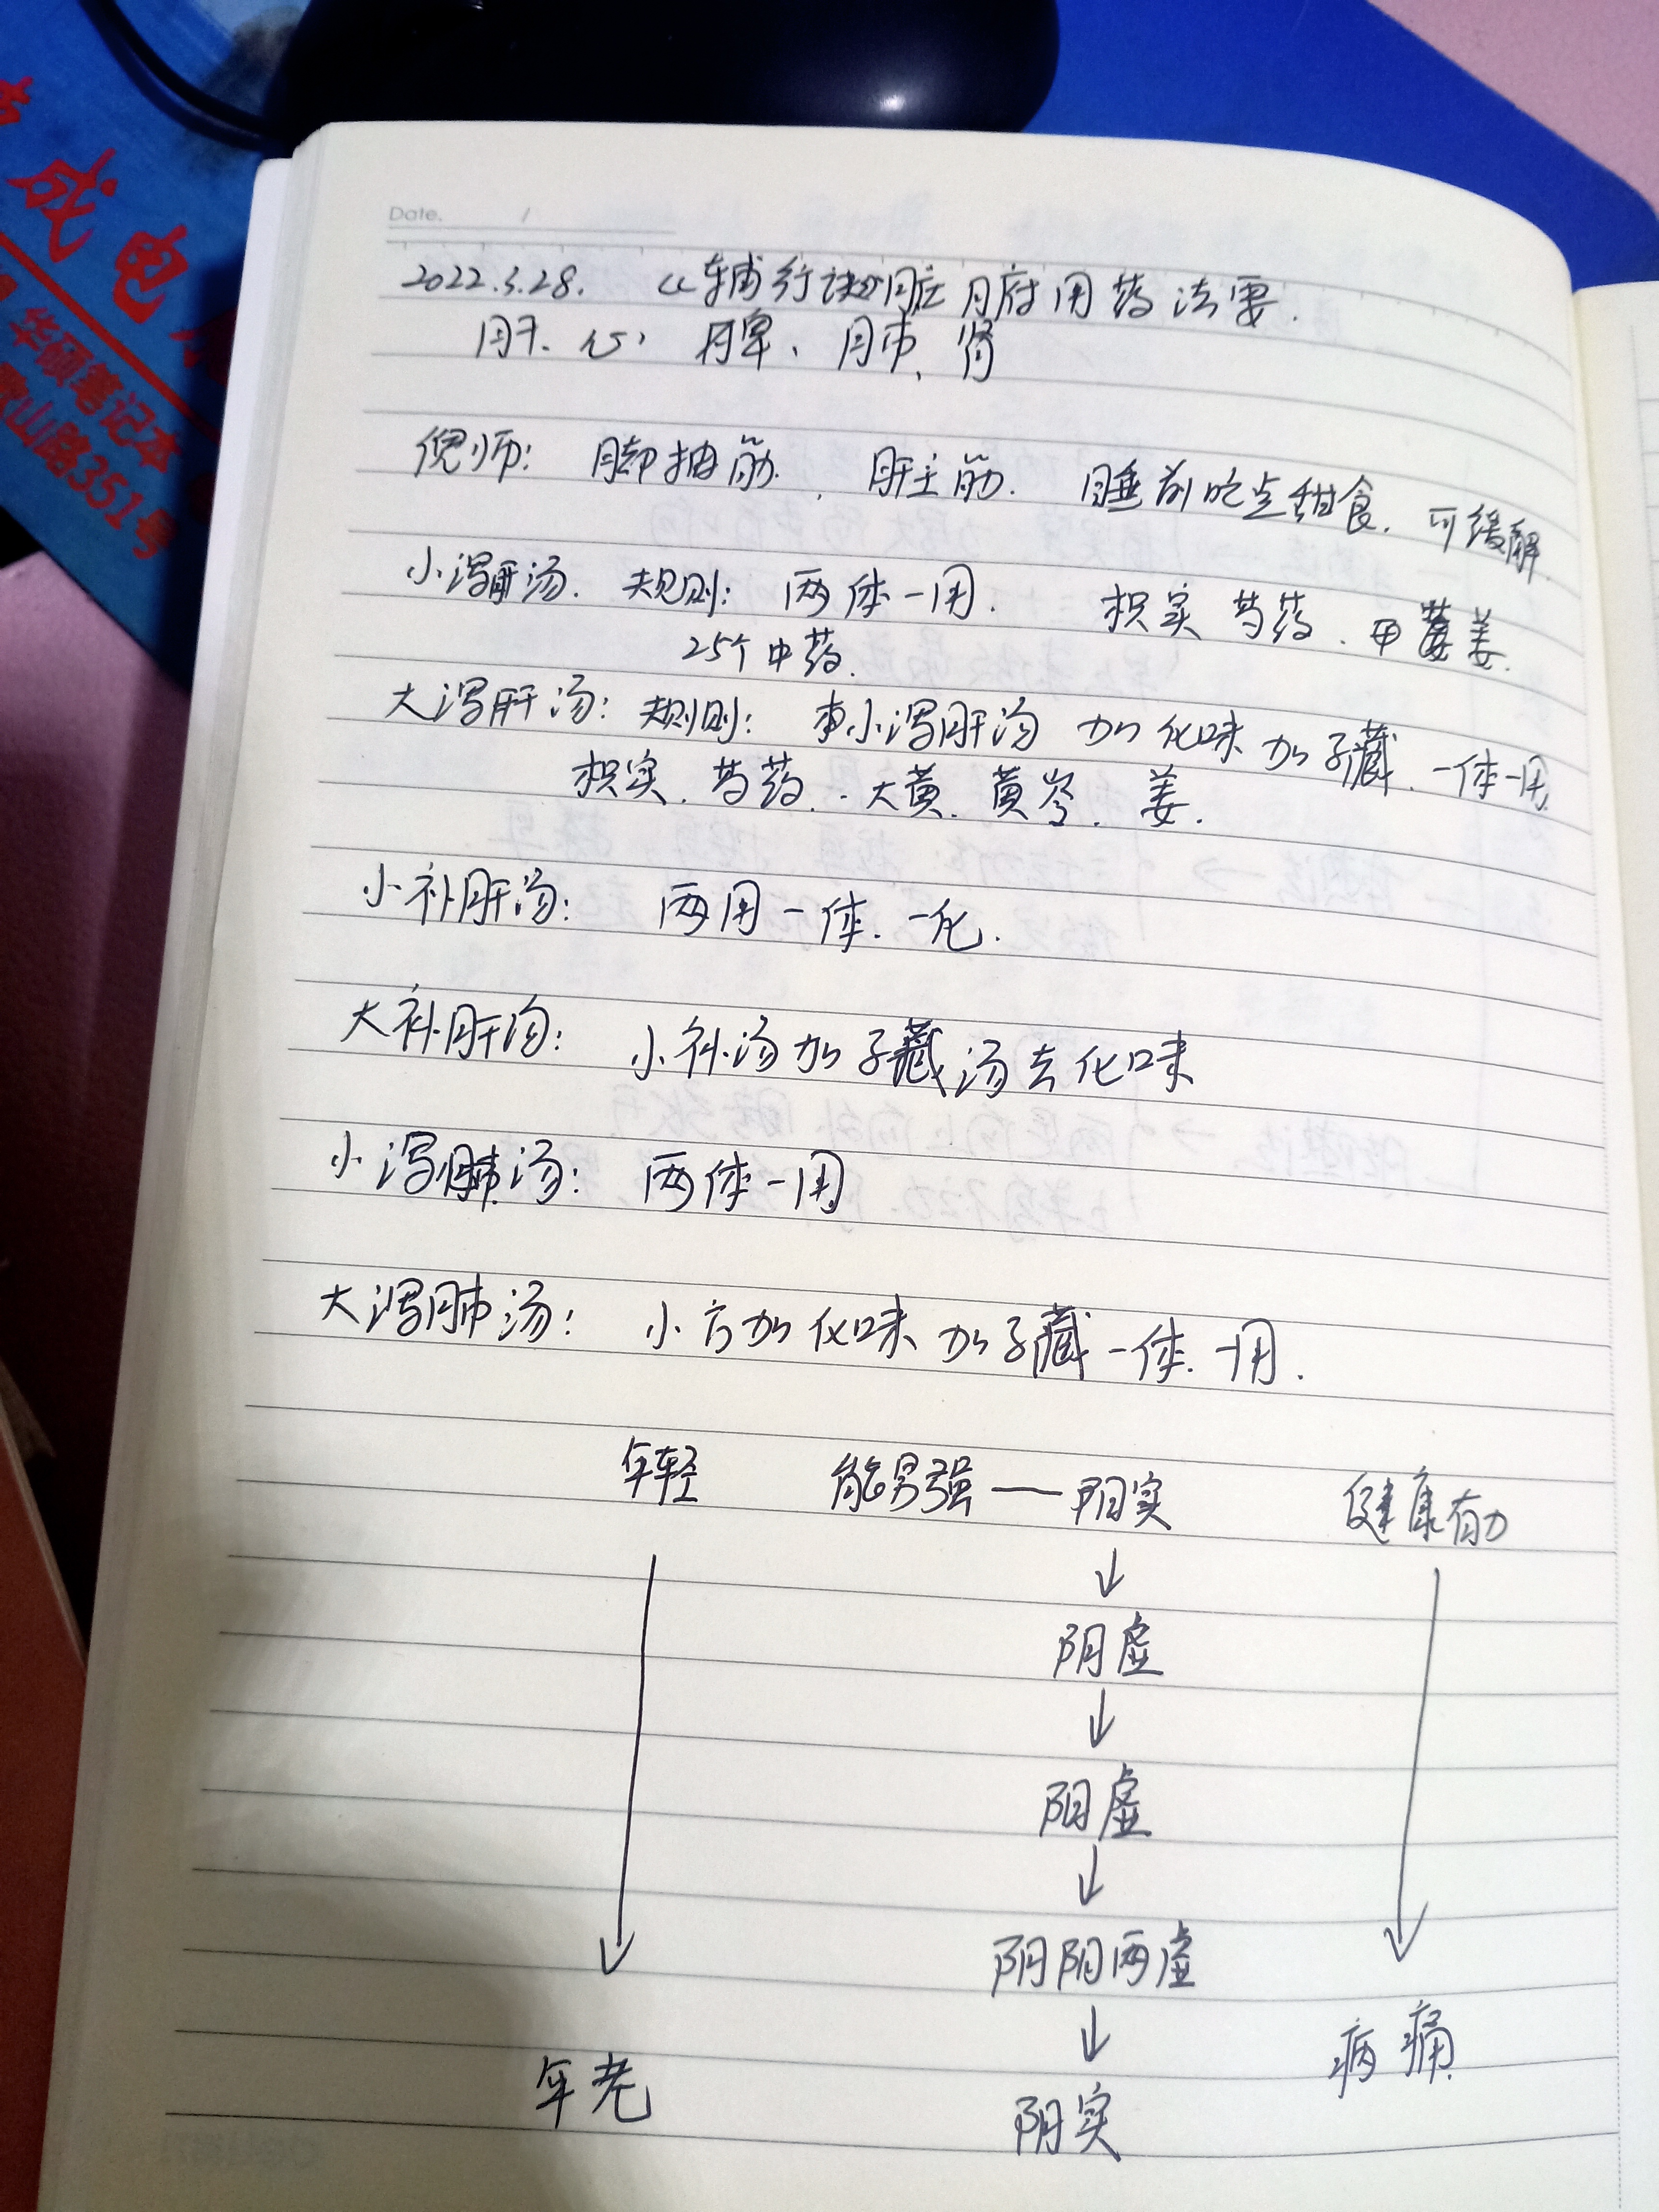 成电
华硕笔记本
山路351号
Date. /
2022.3.28. 《辅行诀》脏腑用药法要.
肝、心、脾、肺、肾
倪师: 脚抽筋. 肝主筋. 睡前吃点甜食. 可缓解.
小泻肝汤. 规则: 两体一用. 枳实 芍药. 姜.
25个中药.
大泻肝汤: 规则: 小泻肝汤 加化味 加子藏. 一体一用.
枳实. 芍药. 大黄. 黄芩. 姜.
小补肝汤: 两用一体. 一化.
大补肝汤: 小补汤加子藏汤去化味
小泻肺汤: 两体一用
大泻肺汤: 小方加化味 加子藏一体. 一用.
年轻 能男强——阳实 健康有力
↓
阴虚
↓
阳虚
↓
阴阳两虚
↓
年老 阴实 病痛